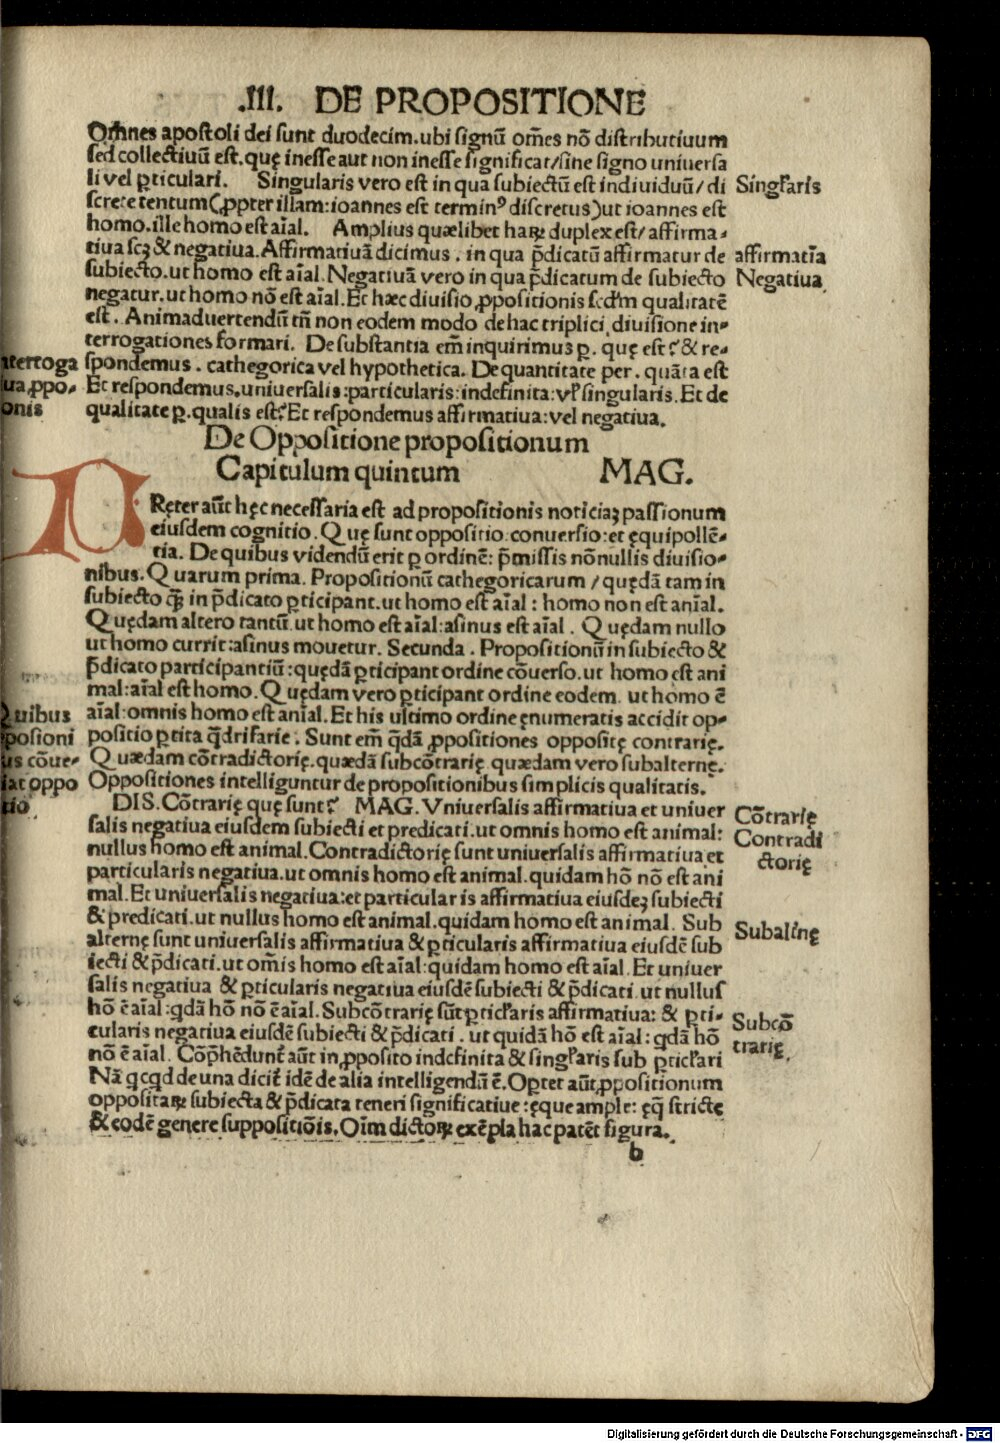 .III. DE PROPOSITIONE
Om̃nes apoſtoli dei ſunt duodecim.ubi ſignū om̃es nō diſtributiuum
ſed collectiuū eſt.quę ineſſe aut non ineſſe ſignificat/ſine ſigno uniuerſa
li vel ꝑticulari. Singularis vero eſt in qua ſubiectū eſt indiuiduū/di
ſcrete tentum(ꝓpter illam:ioannes eſt terminꝰ diſcretus)ut ioannes eſt
homo.ille homo eſt aīal. Amplius quælibet haꝝ duplex eſt/affirma-
tiua ſcꝫ & negatiua.Affirmatiuā dicimus . in qua p̄dicatū affirmatur de
ſubiecto.ut homo eſt aīal.Negatiuā vero in qua p̄dicatum de ſubiecto
negatur.ut homo nō eſt aīal.Et hæc diuiſio ꝓpoſitionis ſcd̄m qualitatē
eſt. Animaduertendū tn̄ non eodem modo de hac triplici diuiſione in-
terrogationes formari. De ſubſtantia em̄ inquirimus ꝑ. quę eſt? & re-
ſpondemus . cathegorica vel hypothetica. De quantitate per. quāta eſt
Et reſpondemus.uniuerſalis:particularis:indefinita:vl̄ ſingularis.Et de
qualitate ꝑ. qualis eſt?Et reſpondemus affirmatiua:vel negatiua.
Singl̄aris
affirmatīa
Negatiua
nterroga
ua ꝓpo-
onis
De Oppoſitione propoſitionum
Capitulum quintum MAG.
PRęter aūt hęc neceſſaria eſt ad propoſitionis noticiaꝫ paſſionum
eiuſdem cognitio. Quę ſunt oppoſitio:conuerſio:et ęquipollē-
tia. De quibus videndū erit ꝑ ordinē: p̄miſſis nōnullis diuiſio-
nibus.Quarum prima. Propoſitionū cathegoricarum / quędā tam in
ſubiecto q̄ꝫ in p̄dicato ꝑticipant.ut homo eſt aīal : homo non eſt anīal.
Quędam altero tantū.ut homo eſt aīal:aſinus eſt aīal . Quędam nullo
ut homo currit:aſinus mouetur. Secunda . Propoſitionū in ſubiecto &
p̄dicato participantiū:quędā ꝑticipant ordine cōuerſo.ut homo eſt ani
mal:aīal eſt homo.Quędam vero ꝑticipant ordine eodem. ut homo ē
aīal:omnis homo eſt anīal.Et his ultimo ordine ęnumeratis accidit op-
poſitio ꝑtita q̄drifarie. Sunt em̄ q̄dā ꝓpoſitiones oppoſitę contrarię.
Quædam cōtradictorię.quædā ſubcōtrarię quædam vero ſubalternę.
Oppoſitiones intelliguntur de propoſitionibus ſimplicis qualitatis.
Quibus
poſioni
us cōue-
iat oppo
tio
DIS. Cōtrarię quę ſunt? MAG. Vniuerſalis affirmatiua et uniuer
ſalis negatiua eiuſdem ſubiecti et predicati.ut omnis homo eſt animal:
nullus homo eſt animal.Contradictorię ſunt uniuerſalis affirmatiua et
particularis negatiua.ut omnis homo eſt animal.quidam hō nō eſt ani
mal.Et uniuerſalis negatiua:et particularis affirmatiua eiuſdeꝫ ſubiecti
& predicati.ut nullus homo eſt animal.quidam homo eſt animal. Sub
alternę ſunt uniuerſalis affirmatiua & ꝑticularis affirmatiua eiuſdē ſub
iecti & p̄dicati.ut om̄is homo eſt aīal:quidam homo eſt aīal.Et uniuer
ſalis negatiua & ꝑticularis negatiua eiuſdē ſubiecti & p̄dicati.ut nulluſ
hō ē aīal:qdā hō nō ē aīal.Subcōtrarię ſūt ꝑticl̄aris affirmatiua: & ꝑti-
cularis negatiua eiuſdē ſubiecti & p̄dicati . ut quidā hō eſt aīal:qdā hō
nō ē aīal. Cōp̄hēdunt̄ aūt in ꝓpoſito indefinita & ſingl̄aris ſub ꝑticl̄ari
Nā qcqd de una dicit̄ idē de alia intelligendū ē.Oꝑtet aūt ꝓpoſitionum
oppoſitaꝝ ſubiecta & p̄dicata teneri ſignificatiue:ęque ample: ęq̄ ſtricte
& eodē genere ſuppoſitiōis.Oīm dictoꝝ exēpla hac patēt figura.
Cōtrarię
Contradi
ctorię
Subalt̄nę
Subcō
trarię.
b
Digitalisierung gefördert durch die Deutsche Forschungsgemeinschaft - DFG